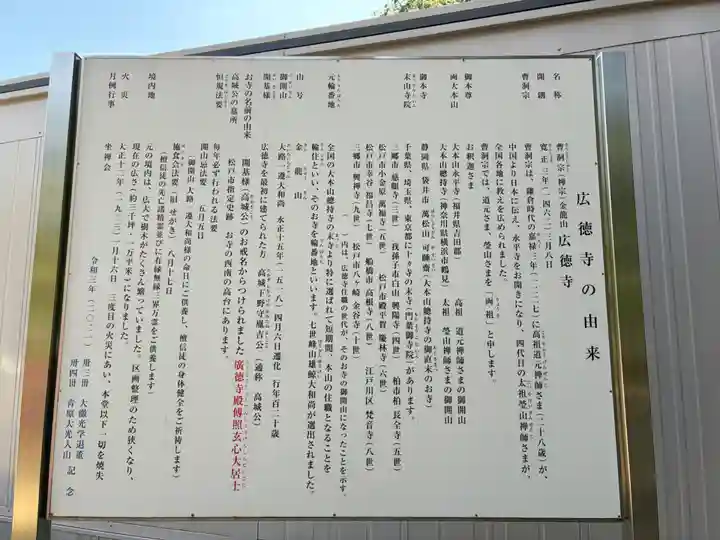 広徳寺の由来
名称 曹洞宗(禅宗)金龍山 広徳寺
開創 寛正三年(一四六二)三月八日
曹洞宗 曹洞宗は、鎌倉時代の嘉禄三年(一二二七)に高祖道元禅師さま(二十八歳)が、
中国より日本に伝え、永平寺をお開きになり、四代目の太祖瑩山禅師さまが、
全国各地に教えを広められました。
曹洞宗では、道元さま、瑩山さまを「両祖」と申します。
御本尊 お釈迦さま
両大本山 大本山永平寺(福井県吉田郡) 高祖 道元禅師さまの御開山
大本山總持寺(神奈川県横浜市鶴見) 太祖 瑩山禅師さまの御開山
御本寺 静岡県 袋井市 萬松山 可睡齋(大本山總持寺の御直末のお寺)
末山寺院 千葉県、埼玉県、東京都に十ヶ寺の末寺(門葉御寺院)があります。
三郷市 慈願寺(三世) 我孫子市白山 興陽寺(四世) 柏市柏 長全寺(五世)
松戸市小金原 萬福寺(五世) 松戸市殿平賀 慶林寺(六世)
松戸市幸谷 福昌寺(七世) 船橋市 高根寺(八世) 江戸川区 梵音寺(八世)
三郷市 興禅寺(九世) 松戸市八ヶ崎 金谷寺(十世)
( )内は、広徳寺住職の世代が、そのお寺の御開山になったことを示す。
元輪番地 全国の大本山總持寺の末寺より特に選ばれて短期間、本山の住職となることを
輪住といい、そのお寺を輪番地といいます。七世峰山雄鯨大和尚が選出されました。
山号 金龍山
御開山 大路 遵大和尚 永正十五年(一五一八)四月六日遷化 行年百二十歳
開基様 広徳寺を最初に建てられた方 高城下野守胤吉公(通称 高城公)
お寺の名前の由来 開基様(高城公)のお戒名からつけられました 廣徳寺殿傳照玄心大居士
高城公の墓所 松戸市指定史跡 お寺の西南の高台にあります。
恒規法要 毎年必ず行われる法要
開山忌法要 五月五日
(御開山 大路 遵大和尚様の命日にご供養し、檀信徒の身体健全をご祈祷します)
施食会法要(旧 せがき) 八月十七日
(檀信徒の先亡諸精霊並びに有縁無縁三界万霊をご供養します)
境内地 元の境内は、広大で樹木がたくさん繁っていました。区画整理のため狭くなり、
現在の広さ(約三千坪、一万平米)になりました。
火災 大正十二年(一九二三)一月十六日 三度目の火災にあい、本堂以下一切を焼失
月例行事 坐禅会
令和三年(二〇二一) 卅三世 大藤光学退董
卅四世 青原大光入山 記念